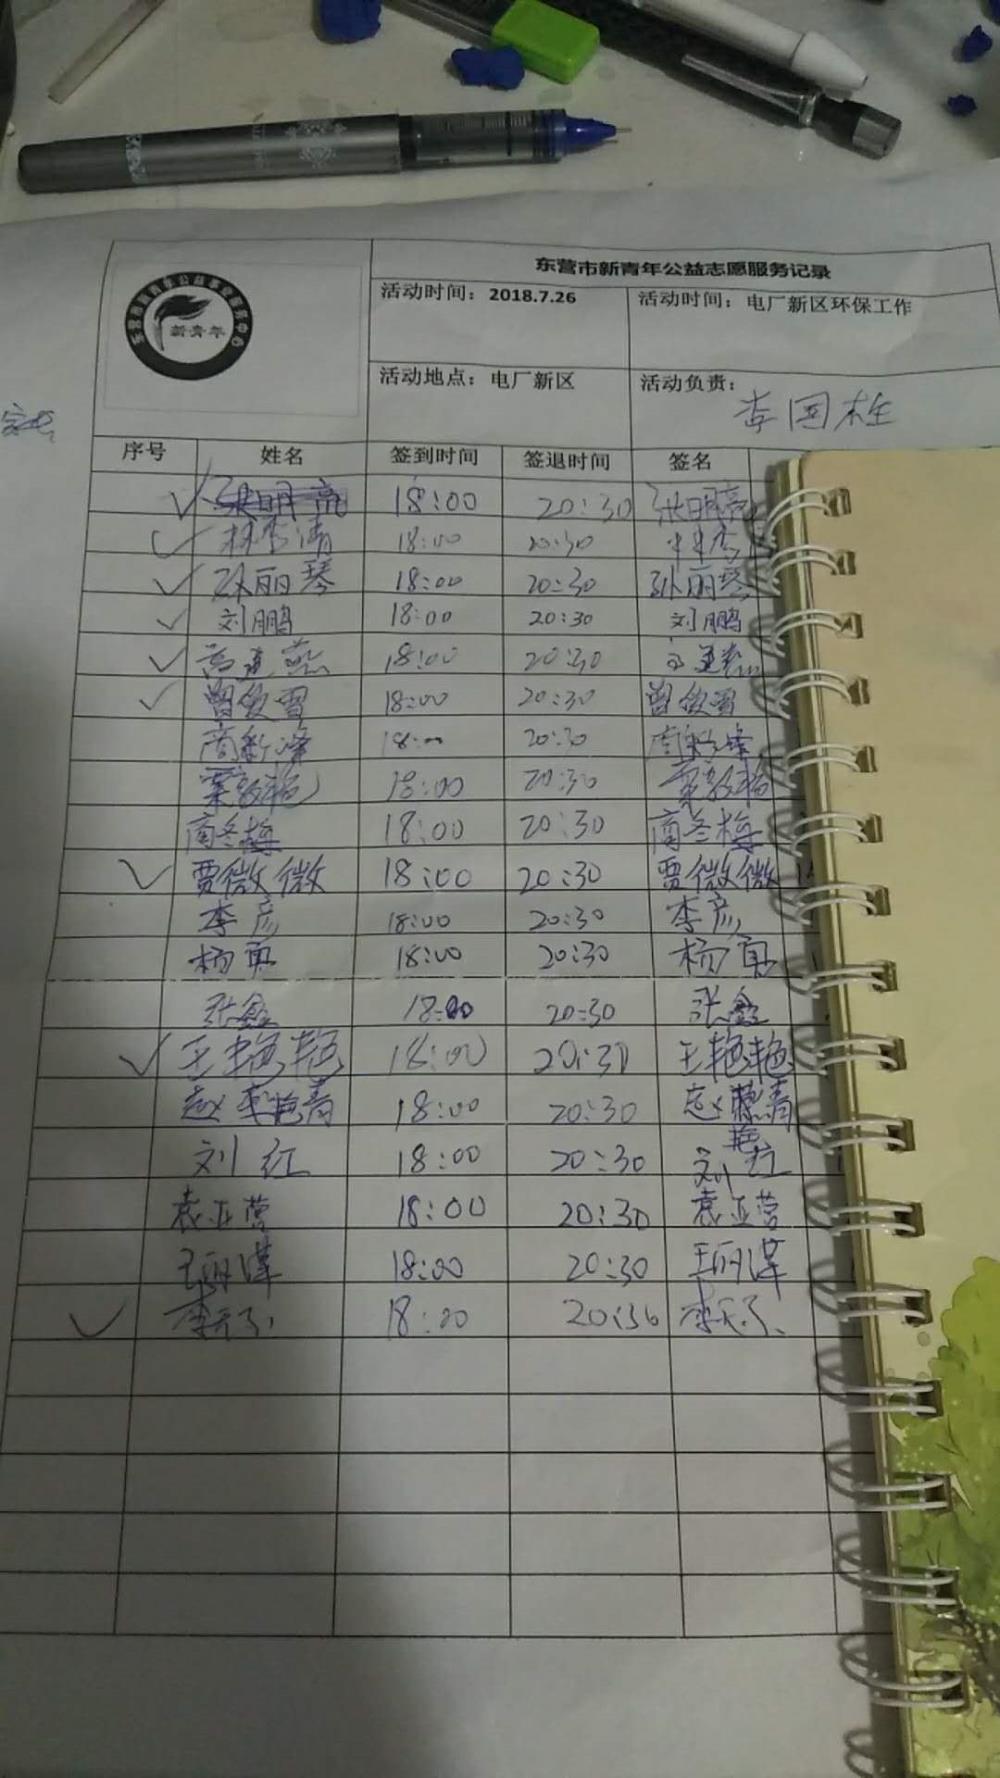 东营市新青年公益志愿服务记录
新青年
活动时间：2018.7.26 活动时间：电厂新区环保工作
活动地点：电厂新区 活动负责：李国栓
序号 姓名 签到时间 签退时间 签名
张明亮 18:00 20:30 张明亮
林秀清 18:00 20:30
孙丽琴 18:00 20:30 孙丽琴
刘鹏 18:00 20:30 刘鹏
高连燕 18:00 20:30
曾俊雪 18:00 20:30 曾俊雪
商新峰 18:00 20:30 商新峰
18:00 20:30
商冬梅 18:00 20:30 商冬梅
贾微微 18:00 20:30 贾微微
李彦 18:00 20:30 李彦
杨勇 18:00 20:30 杨勇
张鑫 18:00 20:30 张鑫
王艳艳 18:00 20:30 王艳艳
赵 青 18:00 20:30 赵 青
刘红 18:00 20:30 刘红
袁亚营 18:00 20:30 袁亚营
18:00 20:30
18:00 20:30